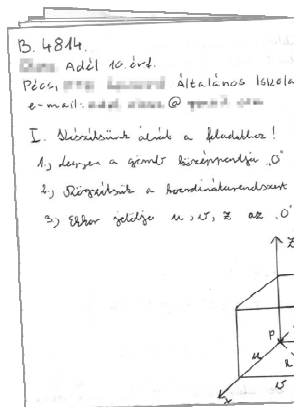 B. 4814.
Adél 10. évf.
Pécs, Általános Iskola
e-mail: @
I. Készítsünk ábrát a feladathoz!
1., Legyen a gömb középpontja "O"
2., Rögzítsük a koordinátarendszert
3., Ekkor jelölje u, v, z az "O"
z
P
u
v
x